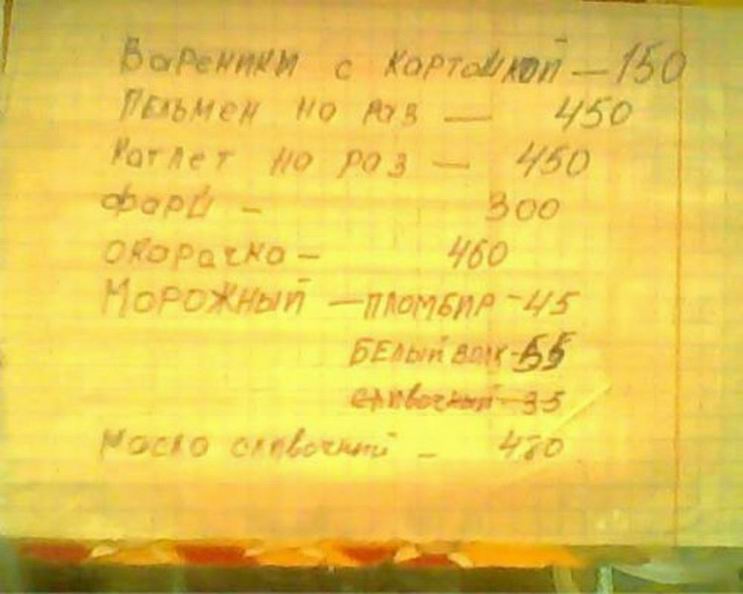 Вареники с картошкой — 150
Пельмен на раз — 450
Катлет на раз — 450
фарш - 300
окарачка - 460
Морожный - пломбир - 45
Белый волк - 55
сливочный - 35
Масло сливочный - 480